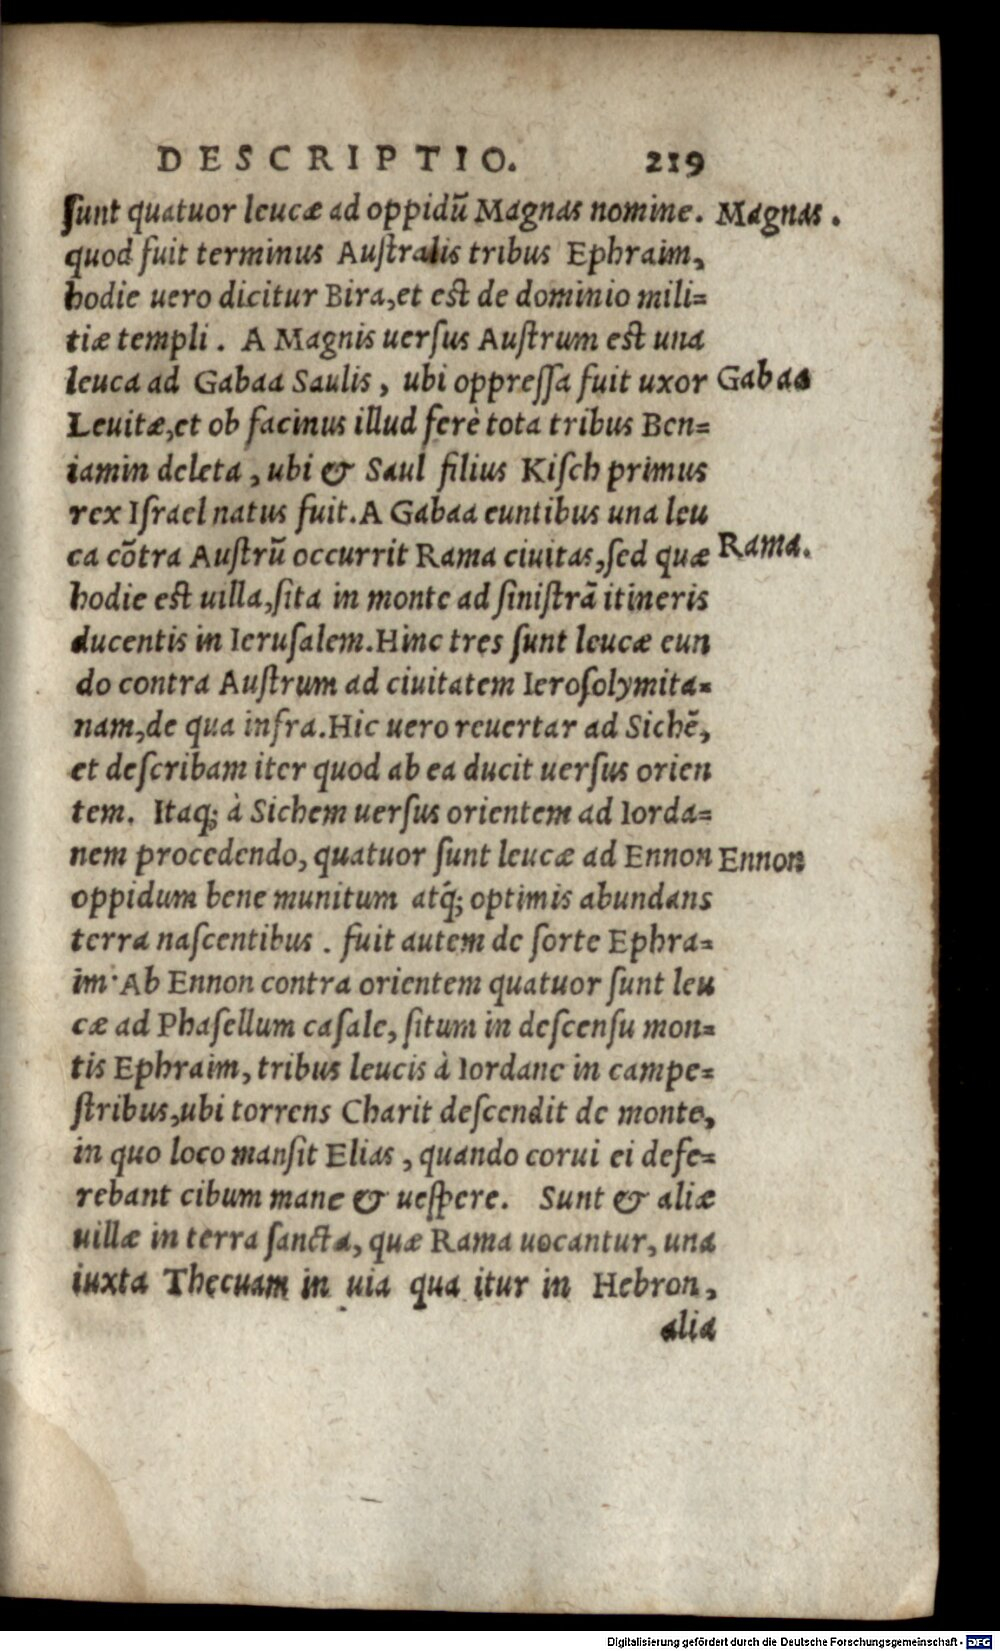 DESCRIPTIO. 219
ſunt quatuor leucæ ad oppidū Magnas nomine. Magnas.
quod fuit terminus Auſtralis tribus Ephraim,
hodie uero dicitur Bira, et eſt de dominio mili=
tiæ templi. A Magnis uerſus Auſtrum eſt una
leuca ad Gabaa Saulis, ubi oppreſſa fuit uxor Gabaa
Leuitæ, et ob facinus illud ferè tota tribus Ben=
iamin deleta, ubi & Saul filius Kiſch primus
rex Iſrael natus fuit. A Gabaa euntibus una leu
ca cōtra Auſtrū occurrit Rama ciuitas, ſed quæ Rama.
hodie eſt uilla, ſita in monte ad ſiniſtrā itineris
ducentis in Ieruſalem. Hinc tres ſunt leucæ eun
do contra Auſtrum ad ciuitatem Ieroſolymita=
nam, de qua infra. Hic uero reuertar ad Sichē,
et deſcribam iter quod ab ea ducit uerſus orien
tem. Itaq; à Sichem uerſus orientem ad Iorda=
nem procedendo, quatuor ſunt leucæ ad Ennon Ennon
oppidum bene munitum atq́; optimis abundans
terra naſcentibus. fuit autem de ſorte Ephra=
im· Ab Ennon contra orientem quatuor ſunt leu
cæ ad Phaſellum caſale, ſitum in deſcenſu mon=
tis Ephraim, tribus leucis à Iordane in campe=
ſtribus, ubi torrens Charit deſcendit de monte,
in quo loco manſit Elias, quando corui ei defe=
rebant cibum mane & ueſpere. Sunt & aliæ
uillæ in terra ſancta, quæ Rama uocantur, una
iuxta Thecuam in uia qua itur in Hebron,
alia
Digitalisierung gefördert durch die Deutsche Forschungsgemeinschaft - DFG